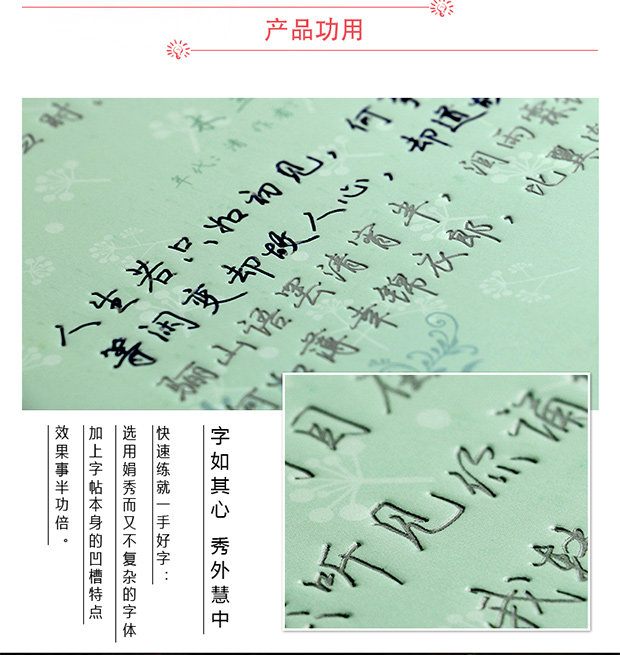 产品功用
年代:清 作者
人生若只如初见,何
等闲变却故人心,却道故
骊山语罢清宵半,泪雨霖
何如薄幸锦衣郎,比翼
听见你诵
字如其心 秀外慧中
快速练就一手好字:
选用娟秀而又不复杂的字体
加上字帖本身的凹槽特点
效果事半功倍。